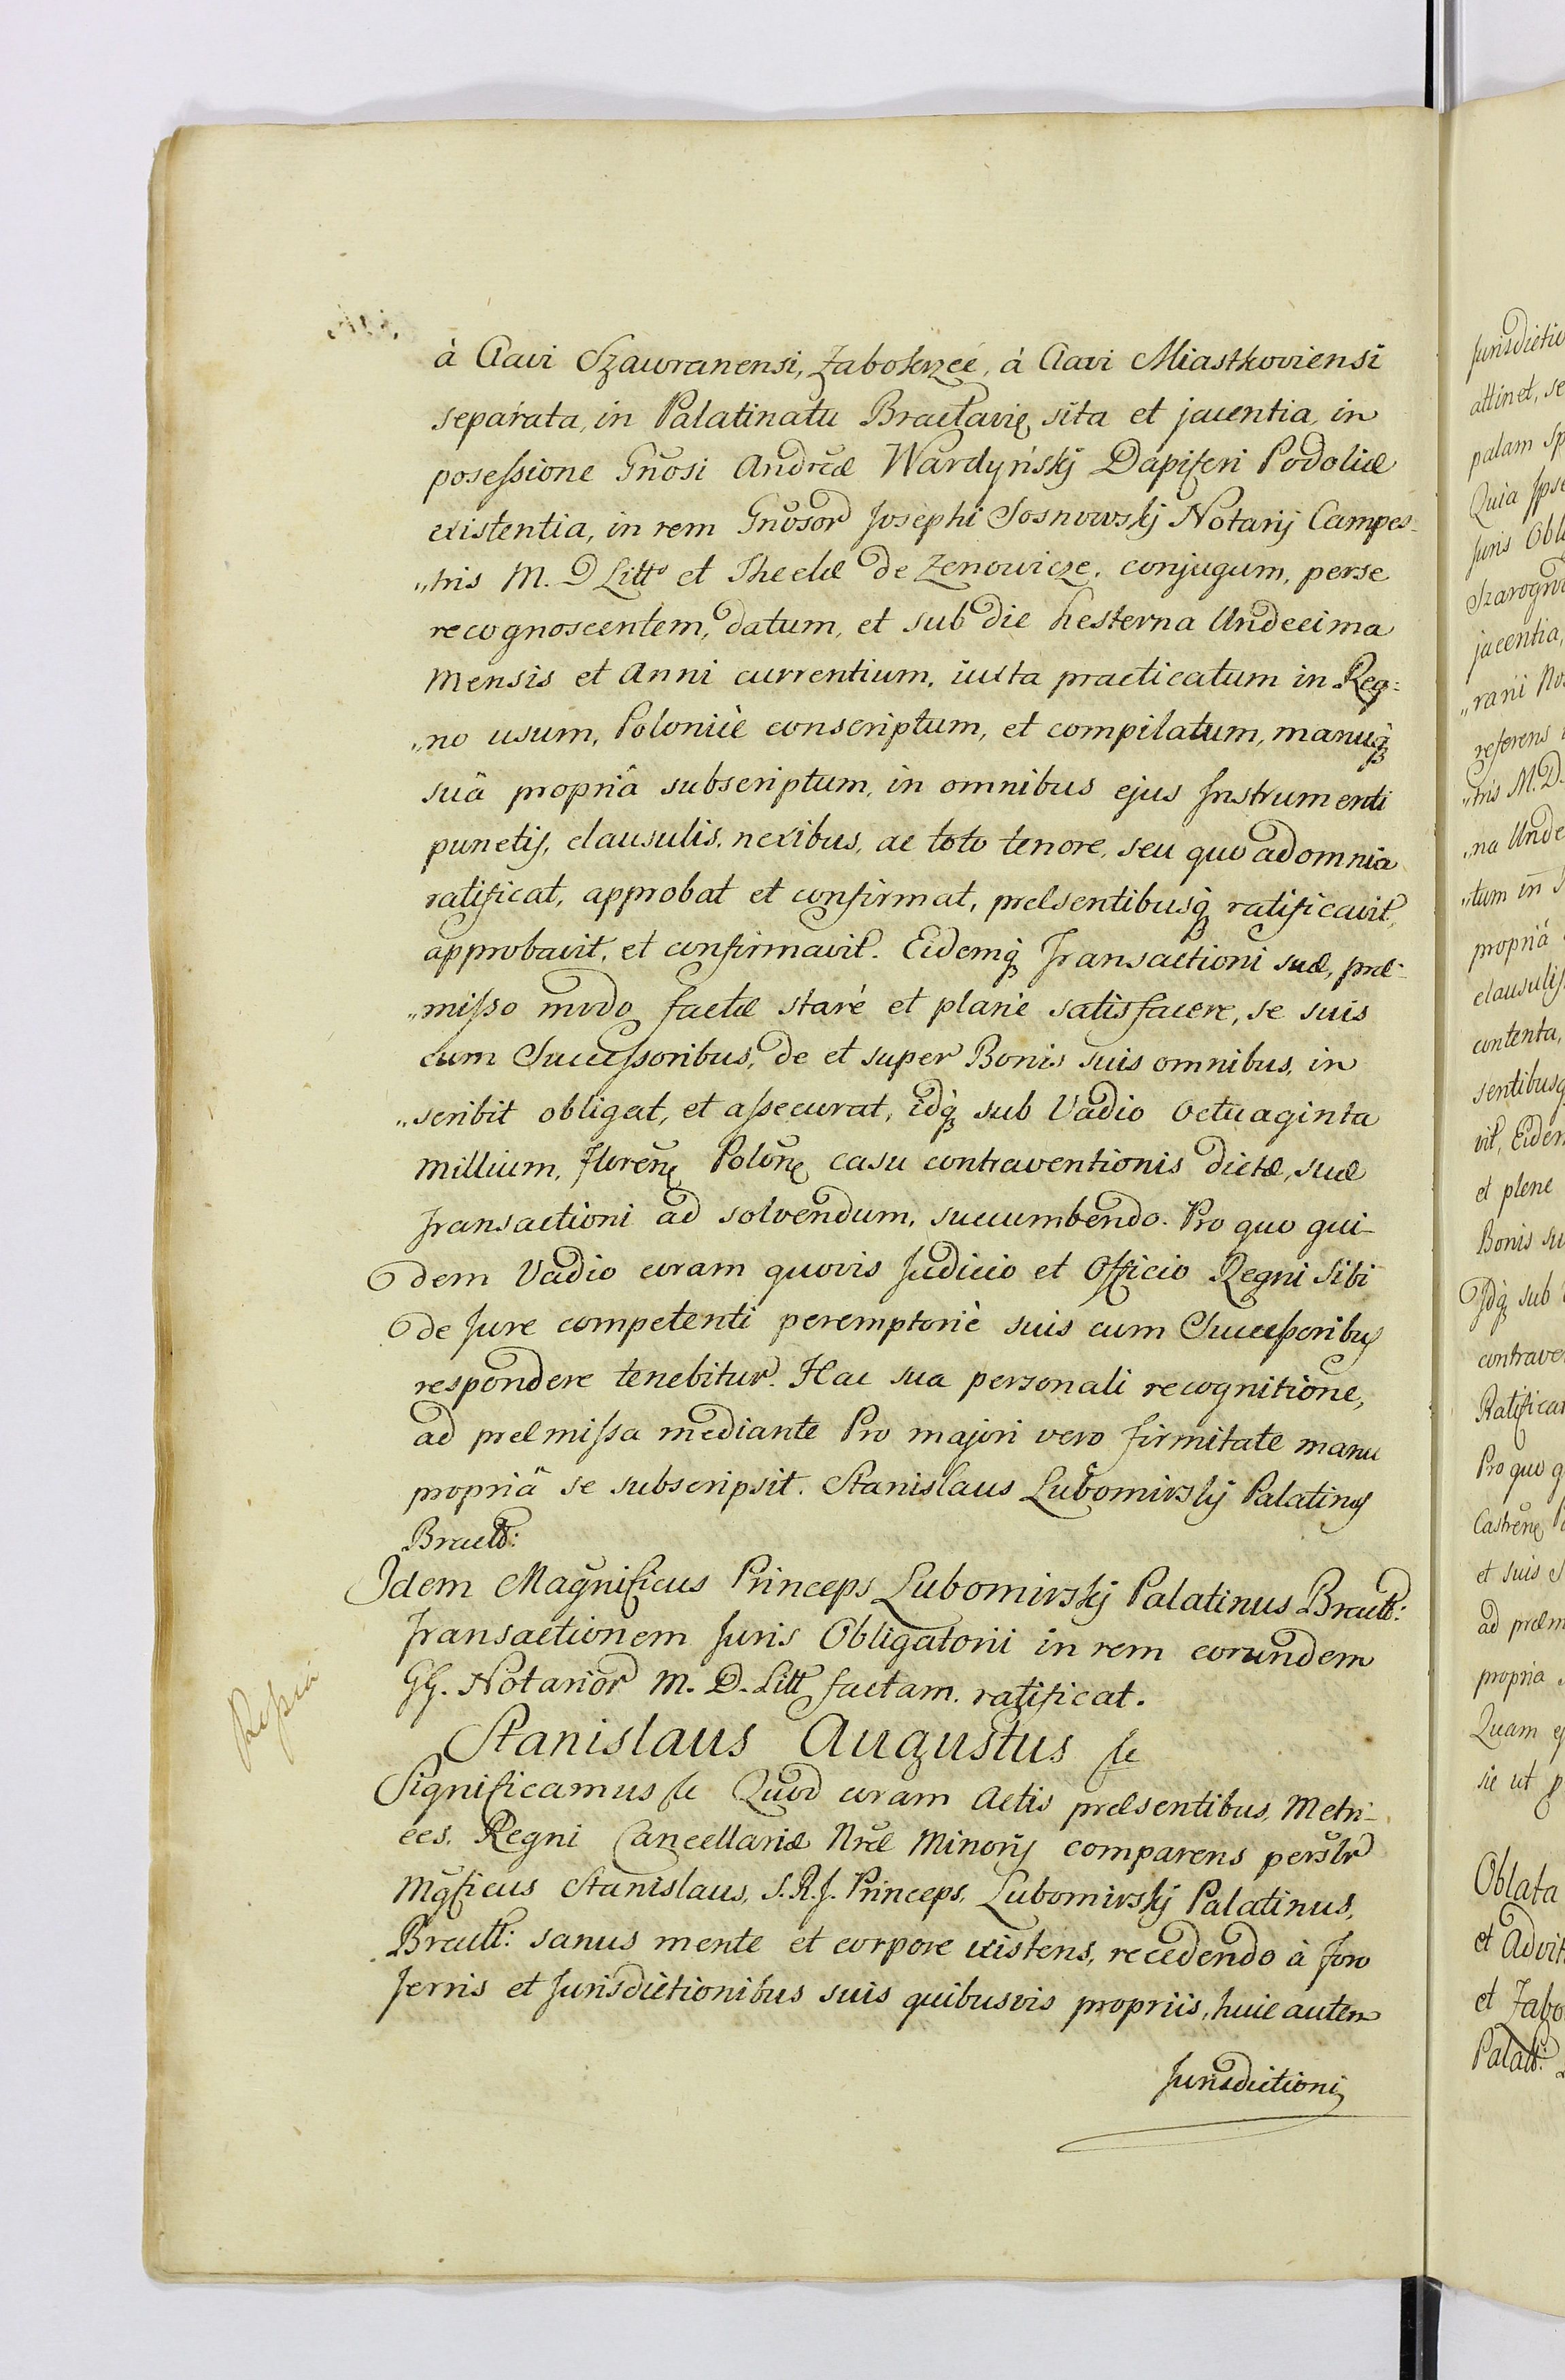 à Clavi Szawranensi, Zabokrzcé, á Clavi Miastkoviensi
separata, in Palatinatu Braclavię sita et jacentia, in
posessione Gñosi Andreæ Wardyński Dapiferi Podoliæ
existentia, in rem Gñosor Josephi Sosnowskj Notarij Campes=
„tris M. D Litto et Theclæ de Zenowicze. conjugum, perse
recognoscentem, datum, et sub die hesterna Undecima
Mensis et Anni currentium. iuxta practicatum in Reg:
„no usum, Polonicè conscriptum, et compilatum, manuq
suâ propriâ subscriptum, in omnibus ejus Instrumenti
punctis, clausulis. nexibus, ac toto tenore, seu quo ad omnia
ratificat, approbat et confirmat, præsentibusq ratificavit,
approbavit, et confirmavit. Eidemq Transactioni suæ, præ-
„misso modo factæ staré et plané satisfacere, se suis
cum Successoribus, de et super Bonis suis omnibus, in
„scribit obligat, et assecurat, idq sub Vadio Octuaginta
Millium, Floreñ Poloñ casu contraventionis dictæ, suæ
Transactioni ad solvendum, succumbendo. Pro quo qui-
dem Vadio coram quovis Judicio et Officio Regni Sibi
de Jure competenti peremptoriè suis cum Successoribus
respondere tenebitur. Hac sua personali recognitione,
ad præmissa mediante Pro majori vero firmitate manu
propriâ se subscripsit. Stanislaus Lubomirskj Palatinus
Braclt:
Idem Magnificus Princeps Lubomirskj Palatinus Braclt:
Transactionem Juris Obligatorii in rem eorundem
GG. Notarior M. D. Litt factam. ratificat.
Stanislaus Augustus &c
Significamus &c Quod coram Actis præsentibus, Metri-
ces. Regni Cancellariæ Nræ Minoris comparens persłr
Mgficus Stanislaus, S. R. J. Princeps, Lubomirskj Palatinus,
Braclt: sanus mente et corpore existens, recedendo à foro
Terris et Jurisdictionibus suis quibusvis propriis, huic autem
Jurisdictioni
Jurisdictio
attinet, se
palam sp
Quia Ipse
Juris Obl
Szarogro
jacentia,
„rani No
referens
„tris M. D.
„na Unde
„tum in
propriâ
clausulis
contenta,
sentibusq
vit, Eidem
et plene
Bonis su
Idq sub
contrave
Ratificat
Pro quo q
Castreñ
et suis
ad præm
propria
Quam
sic ut p
Oblata
et Advit
et Zabo
Palatt: